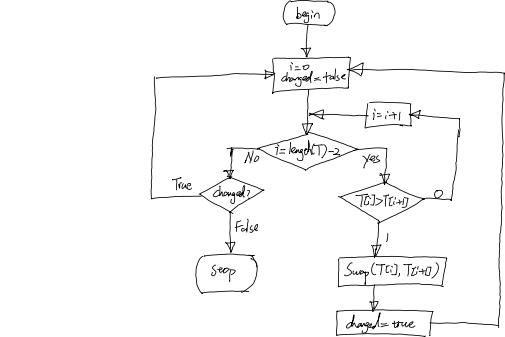 begin
i=0
changed=false
i=i+1
i=length(T)-2
No
yes
True
changed?
T[i]>T[i+1]
0
False
1
stop
Swap(T[i],T[i+1])
changed=true